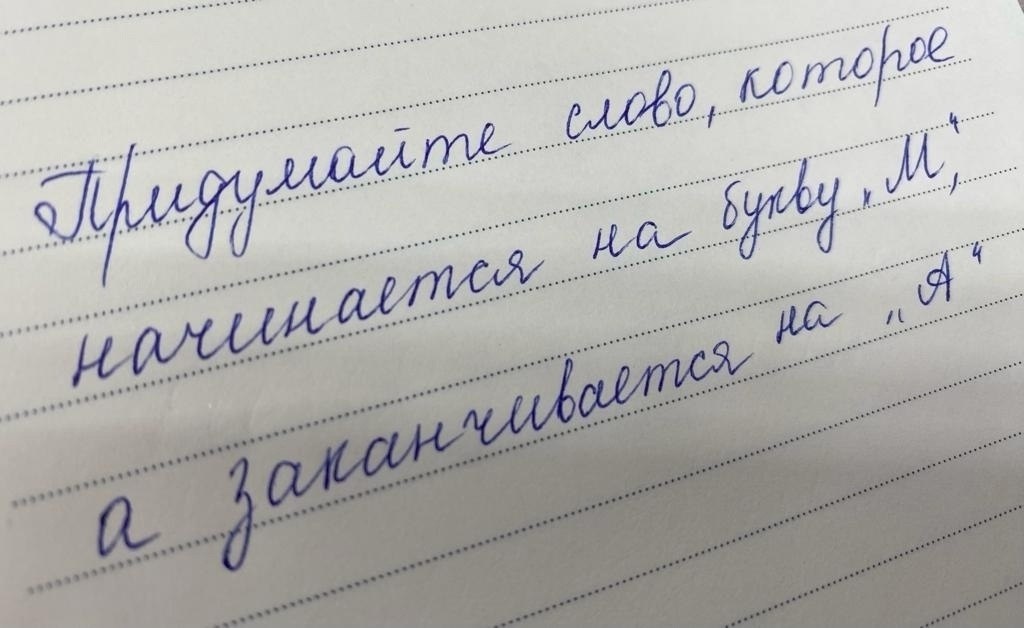 Придумайте слово, которое
начинается на букву „М“,
а заканчивается на „А“